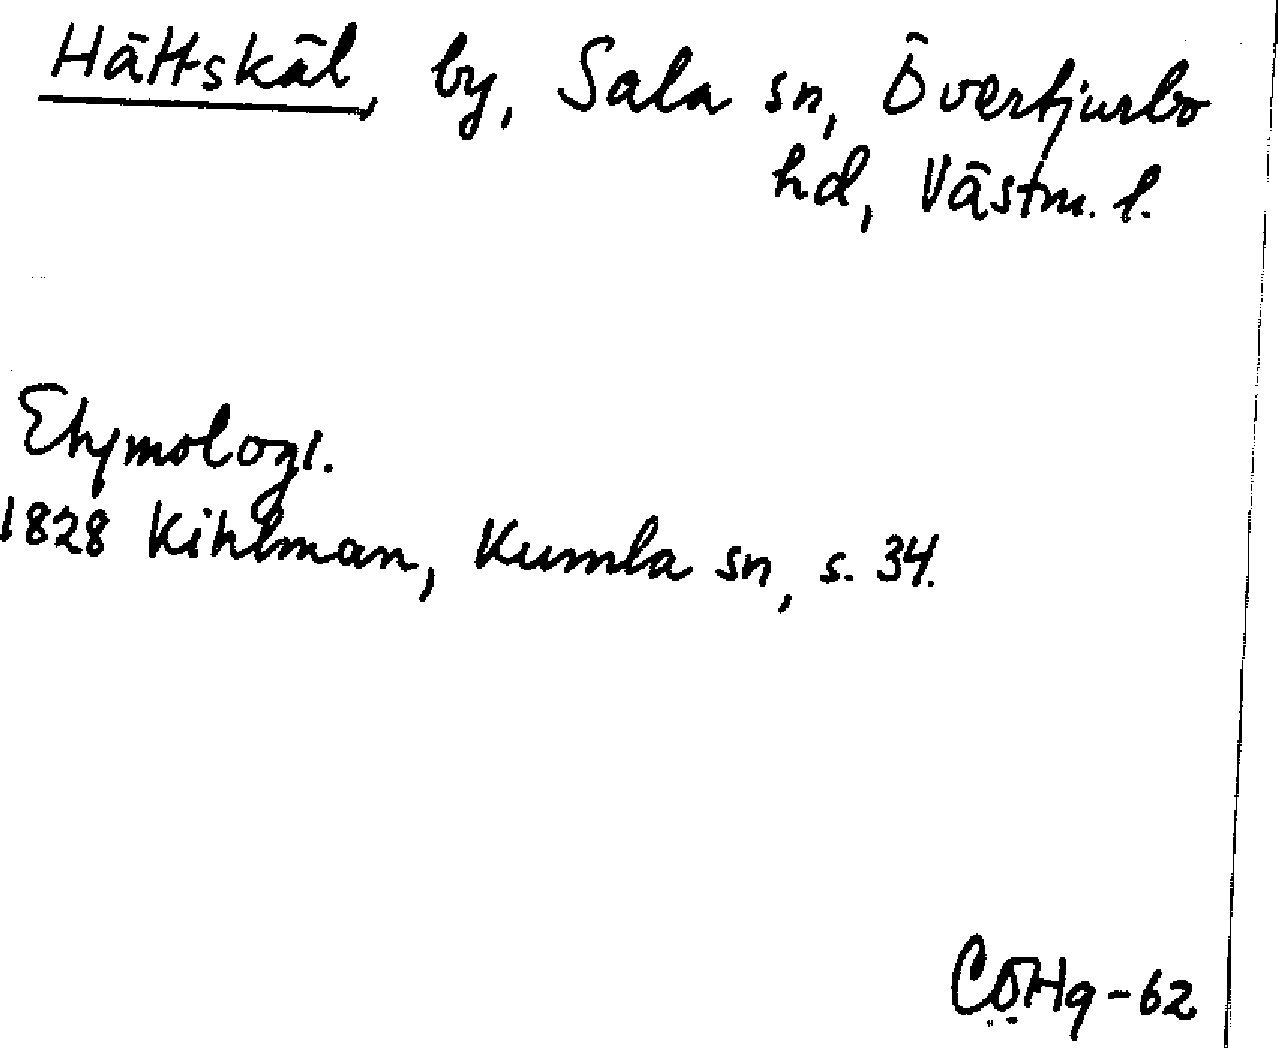 Hättskäl, by, Sala sn, Övertjurbo
hd, Västm. l.
Etymologi.
1828 Kihlman, Kumla sn, s. 34.
CÖHg-62